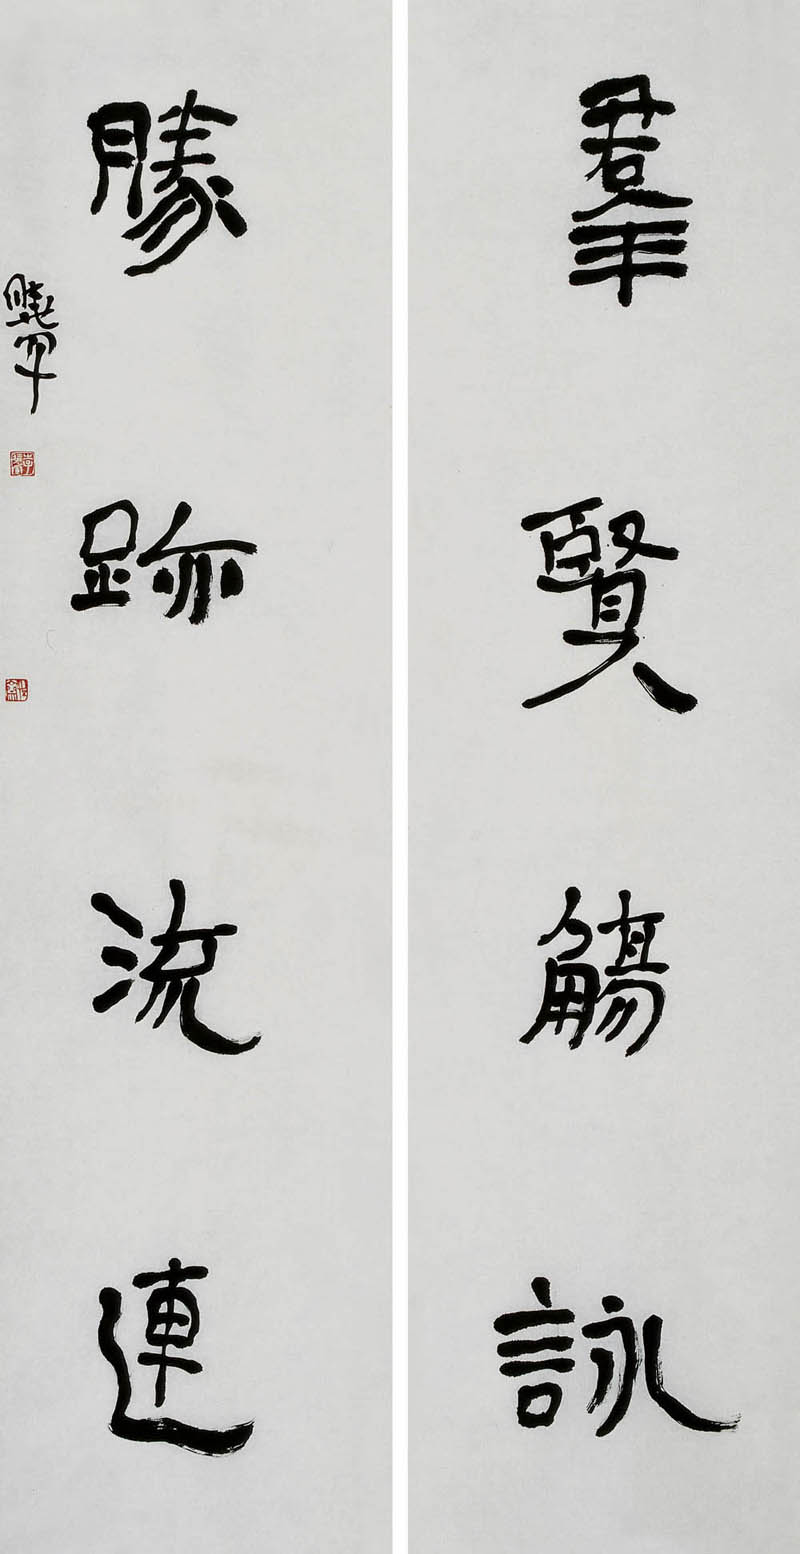 羣賢觴詠
勝跡流連